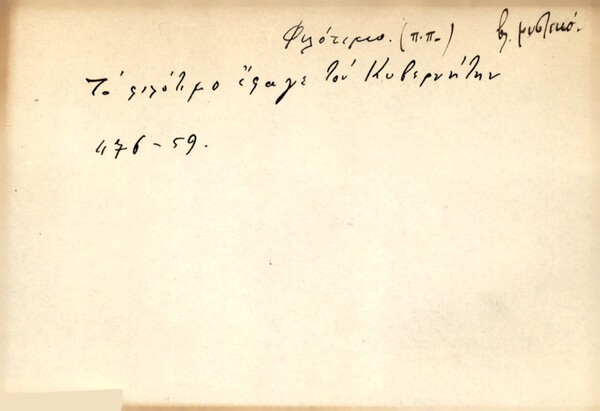 Φιλότιμο. (π.π.) βλ. μυστικό.
Τό φιλότιμο ἔφαγε τόν Κυβερνήτην
476-59.